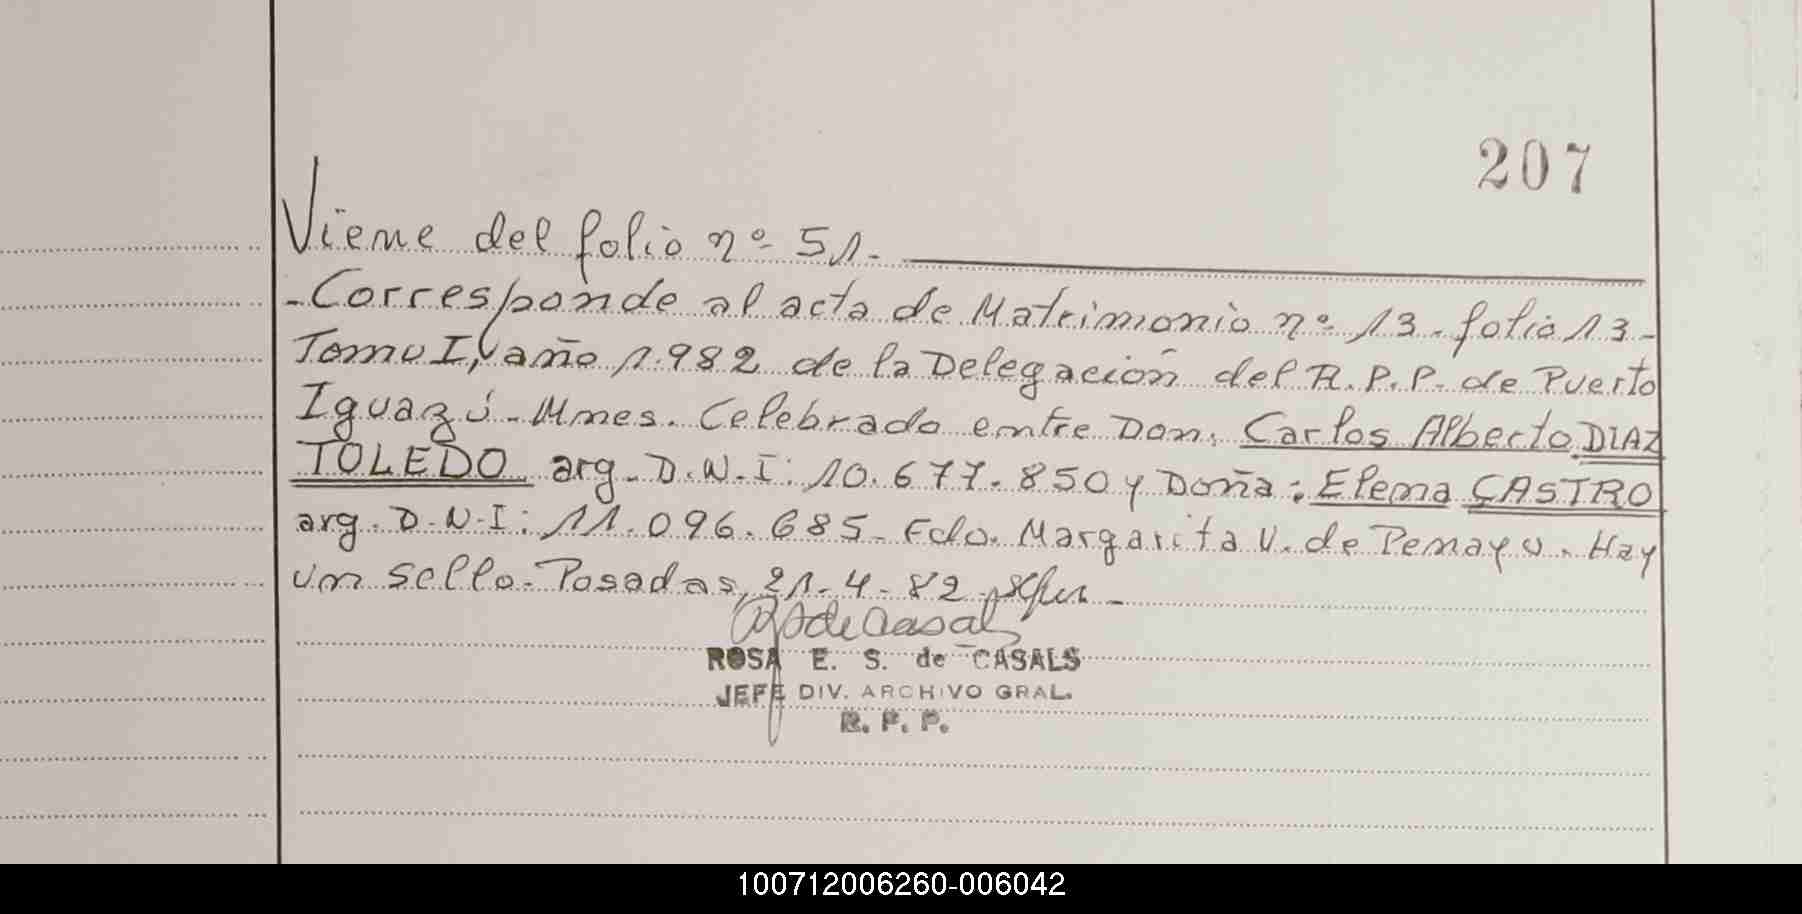 207
Viene del folio nº 51.
-Corresponde al acta de Matrimonio nº 13. folio 13-
Tomo I, año 1.982 de la Delegación del R.P.P. de Puerto
Iguazú - Mnes. Celebrado entre Don: Carlos Alberto DIAZ
TOLEDO arg. D.N.I: 10.677.850 y Doña: Elena CASTRO
arg. D.N.I: 11.096.685. Fdo. Margarita V. de Penayo. Hay
un sello. Posadas, 21-4-82
ROSA E. S. de CASALS
JEFE DIV. ARCHIVO GRAL.
R. P. P.
100712006260-006042